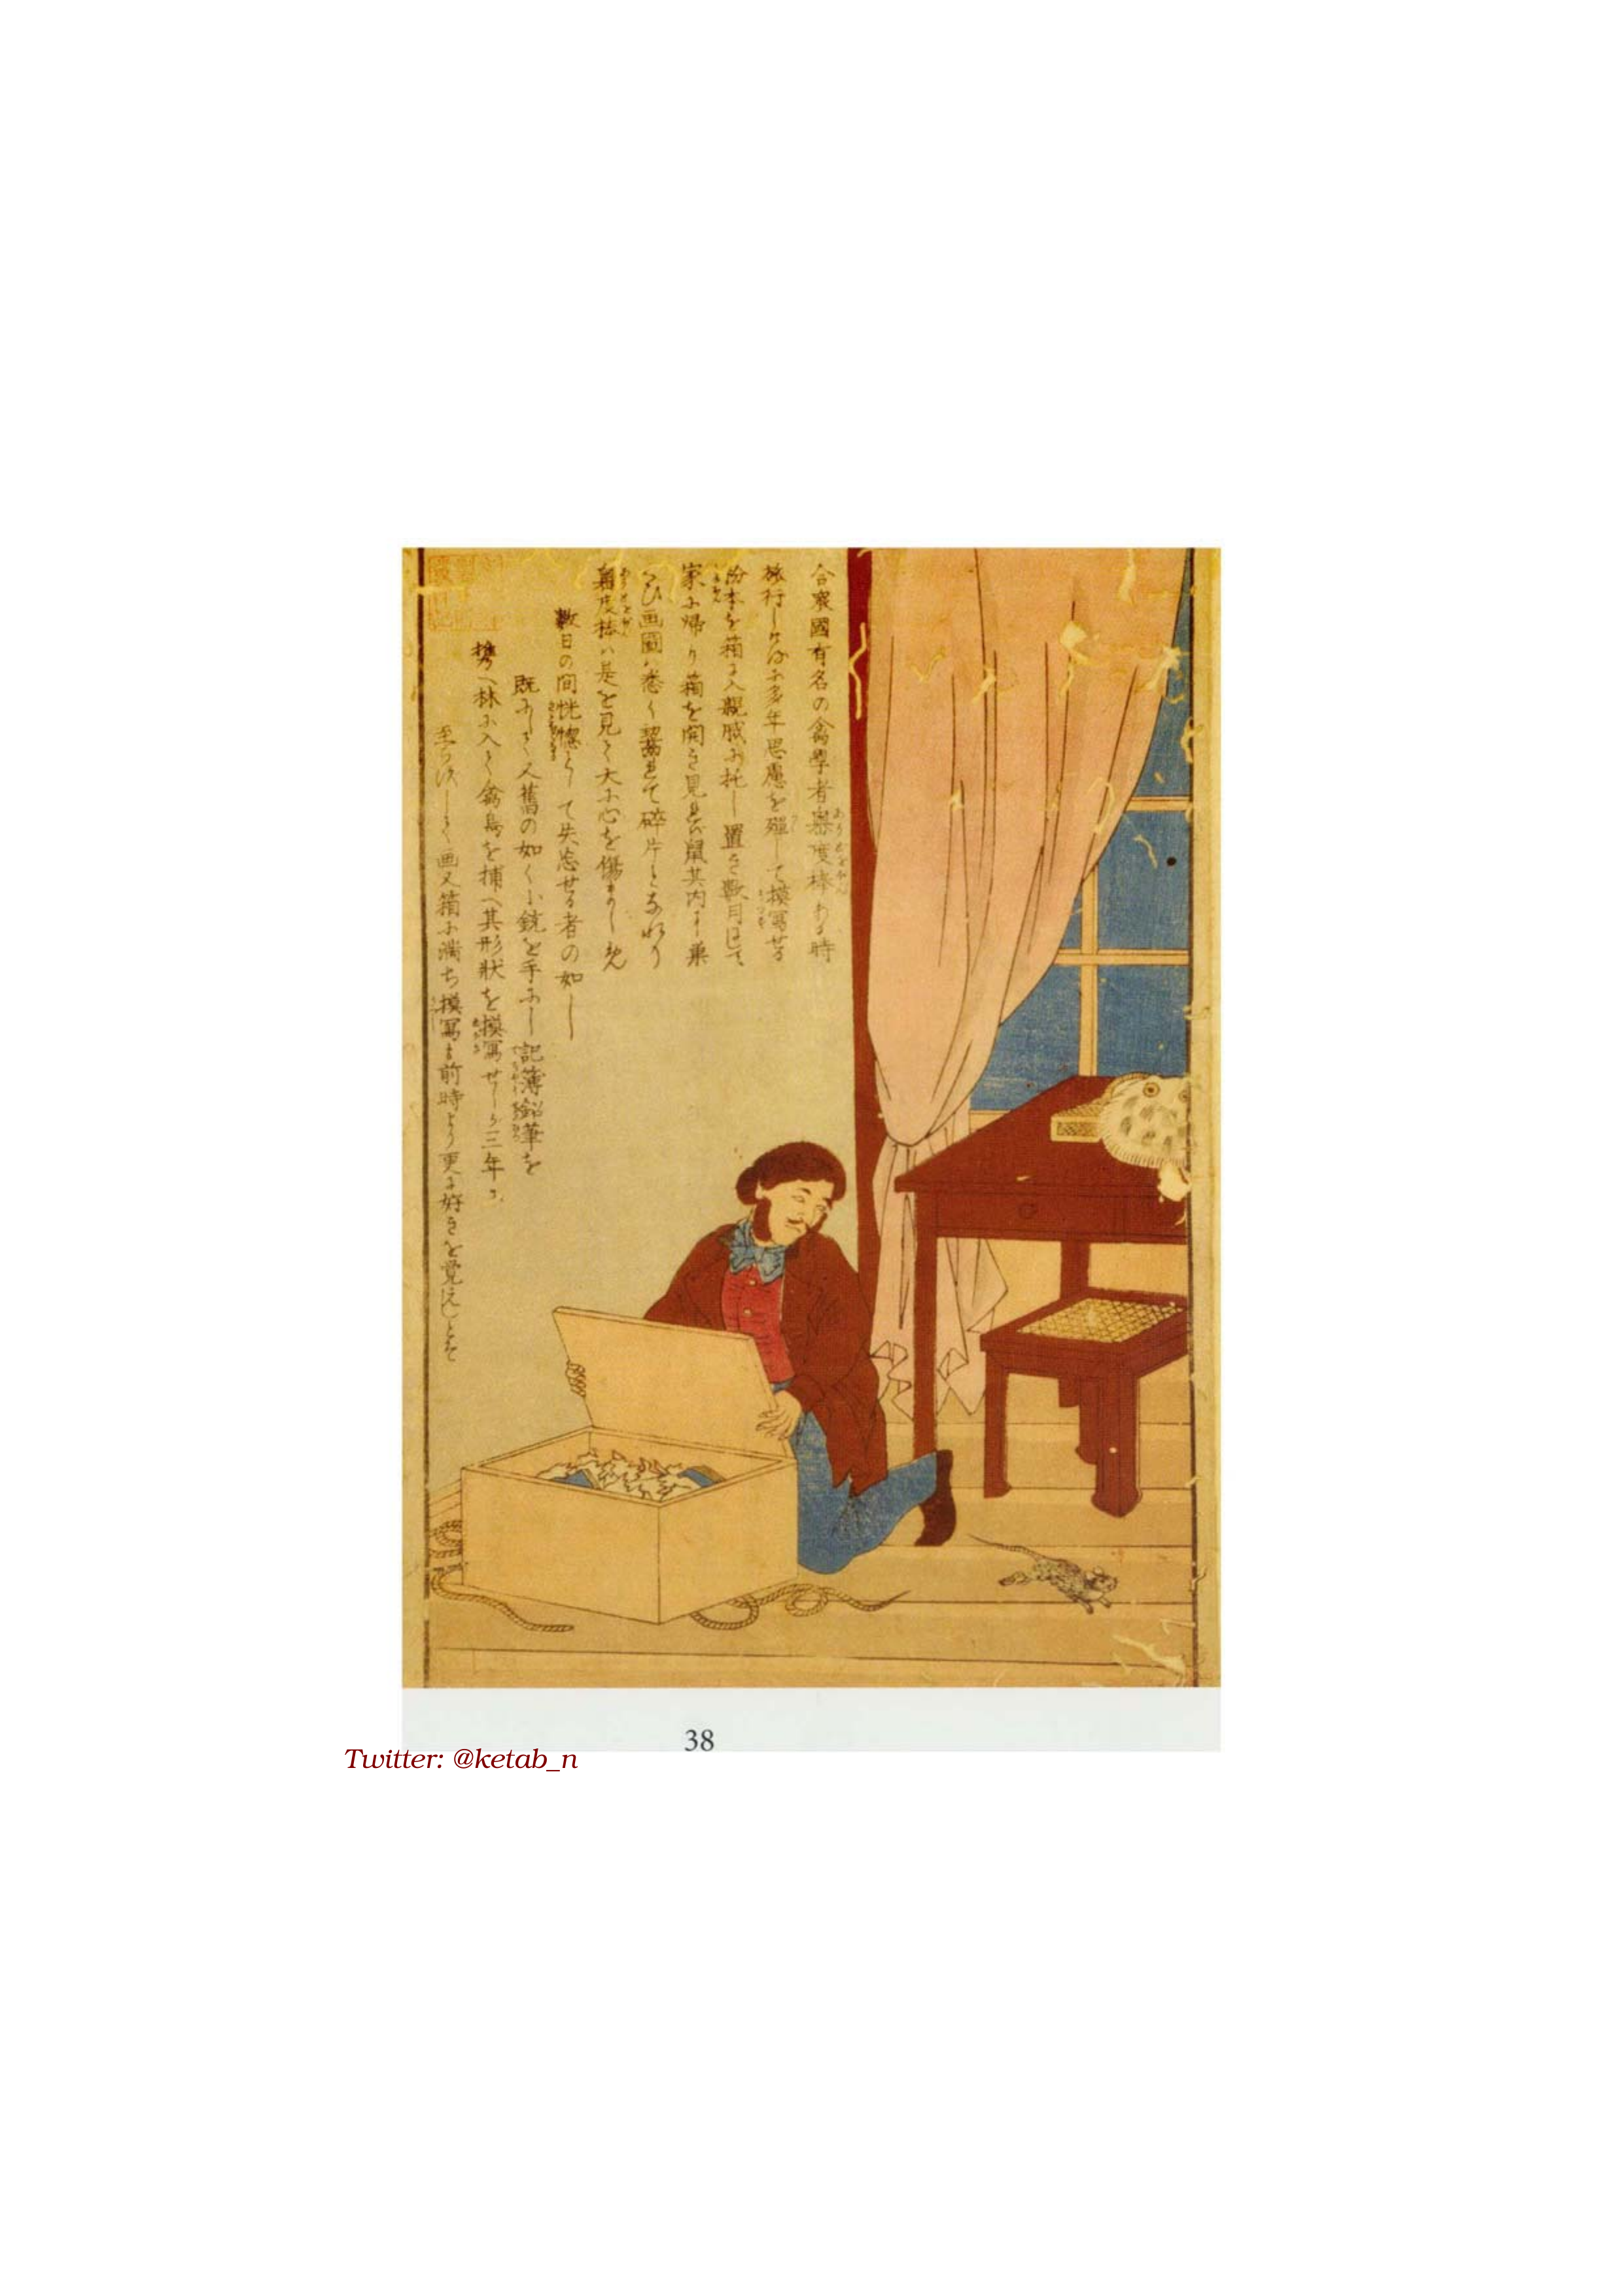 合衆國有名の禽學者奥度棒ある時
旅行しけるに多年思慮を殫して摸寫せる
粉本を箱に入親戚に托し置き數月にして
家に帰り箱を開き見れば鼠其内に巣
くひ画圖は悉く齧れて碎片となれり
奥度棒は是を見て大に心を傷ましめ
數日の間恍惚として失念せる者の如し
既にして又舊の如く小銃を手にし記簿鉛筆を
携へ林に入て禽鳥を捕へ其形狀を摸寫せしが三年に
至らずして画又箱に満ち摸冩も前時より更に好きを覺えしとぞ
38
Twitter: @ketab_n